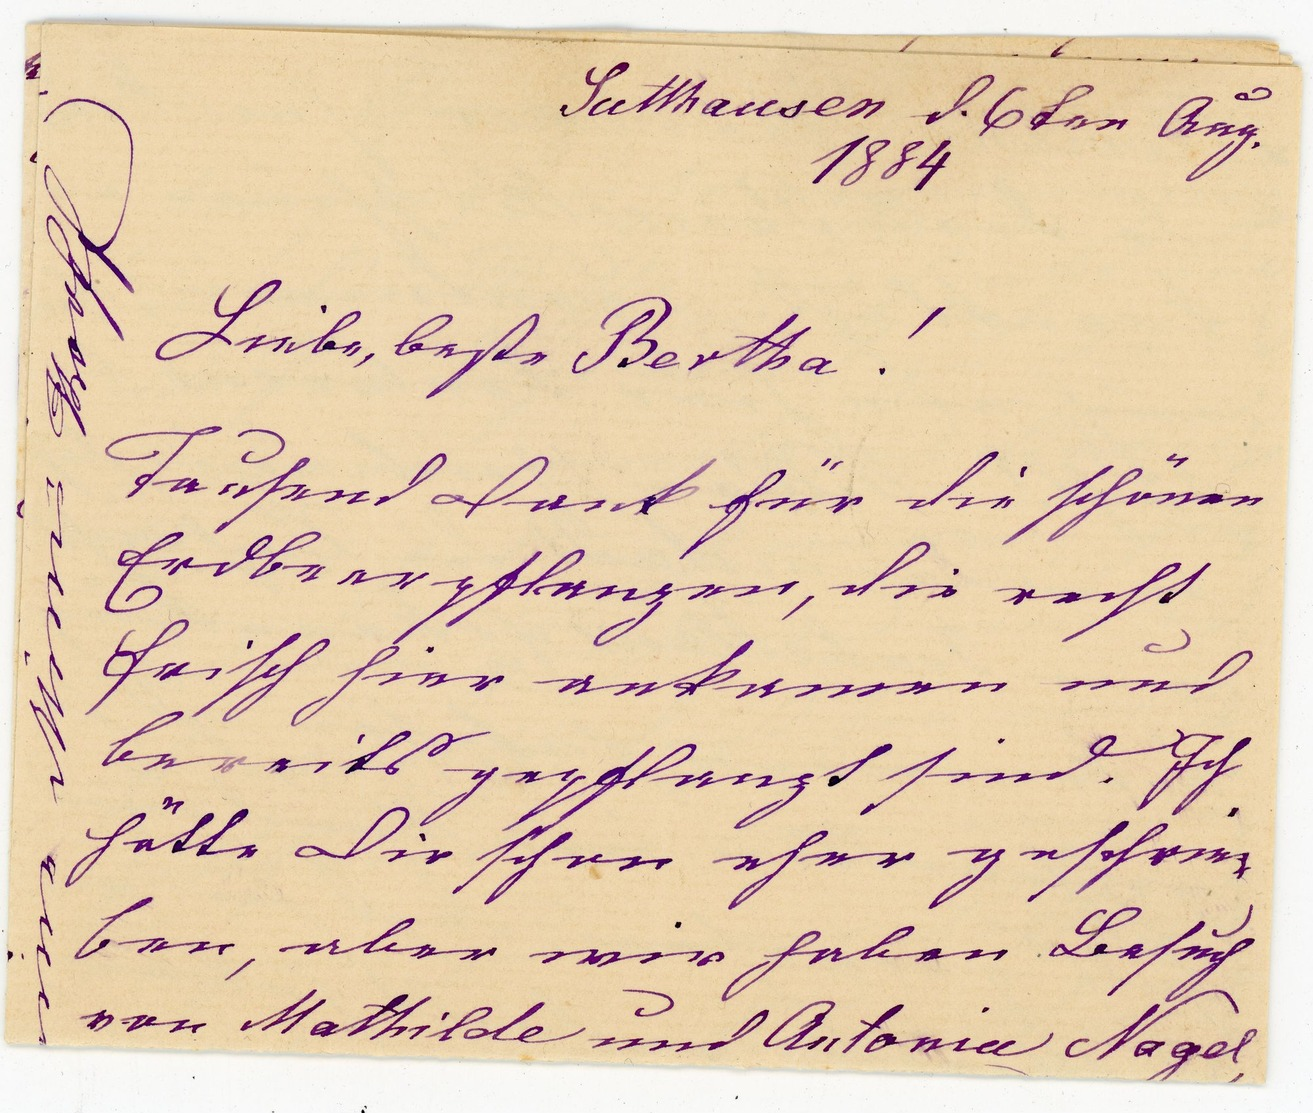 Sutthausen d. 6ten Aug.
1884
Liebe, beste Bertha!
Tausend Dank für die schönen
Erdbeerpflanzen, die recht
frisch hier ankamen und
bereits gepflanzt sind. Ich
hätte Dir schon eher geschrie-
ben, aber wir haben Besuch
von Mathilde und Antonia Nagel,